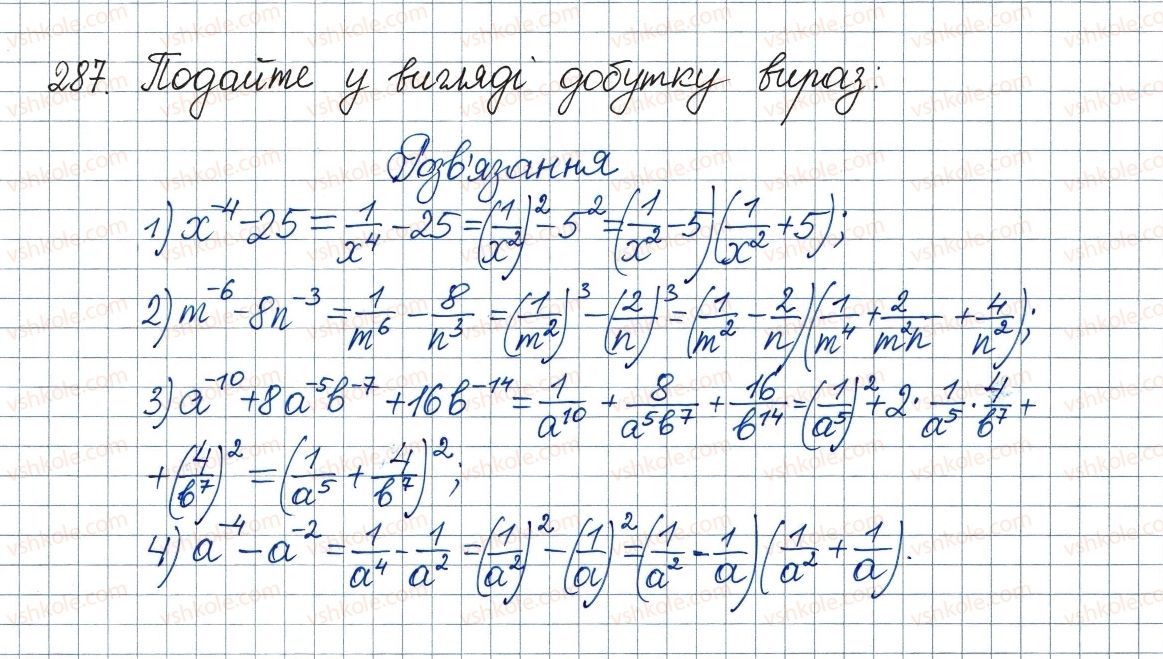 287. Подайте у вигляді добутку вираз:
Розв'язання
1) x⁻⁴ - 25 = 1/x⁴ - 25 = (1/x²)² - 5² = (1/x² - 5)(1/x² + 5);
2) m⁻⁶ - 8n⁻³ = 1/m⁶ - 8/n³ = (1/m²)³ - (2/n)³ = (1/m² - 2/n)(1/m⁴ + 2/m²n + 4/n²);
3) a⁻¹⁰ + 8a⁻⁵b⁻⁷ + 16b⁻¹⁴ = 1/a¹⁰ + 8/a⁵b⁷ + 16/b¹⁴ = (1/a⁵)² + 2 · 1/a⁵ · 4/b⁷ +
+ (4/b⁷)² = (1/a⁵ + 4/b⁷)²;
4) a⁻⁴ - a⁻² = 1/a⁴ - 1/a² = (1/a²)² - (1/a)² = (1/a² - 1/a)(1/a² + 1/a).